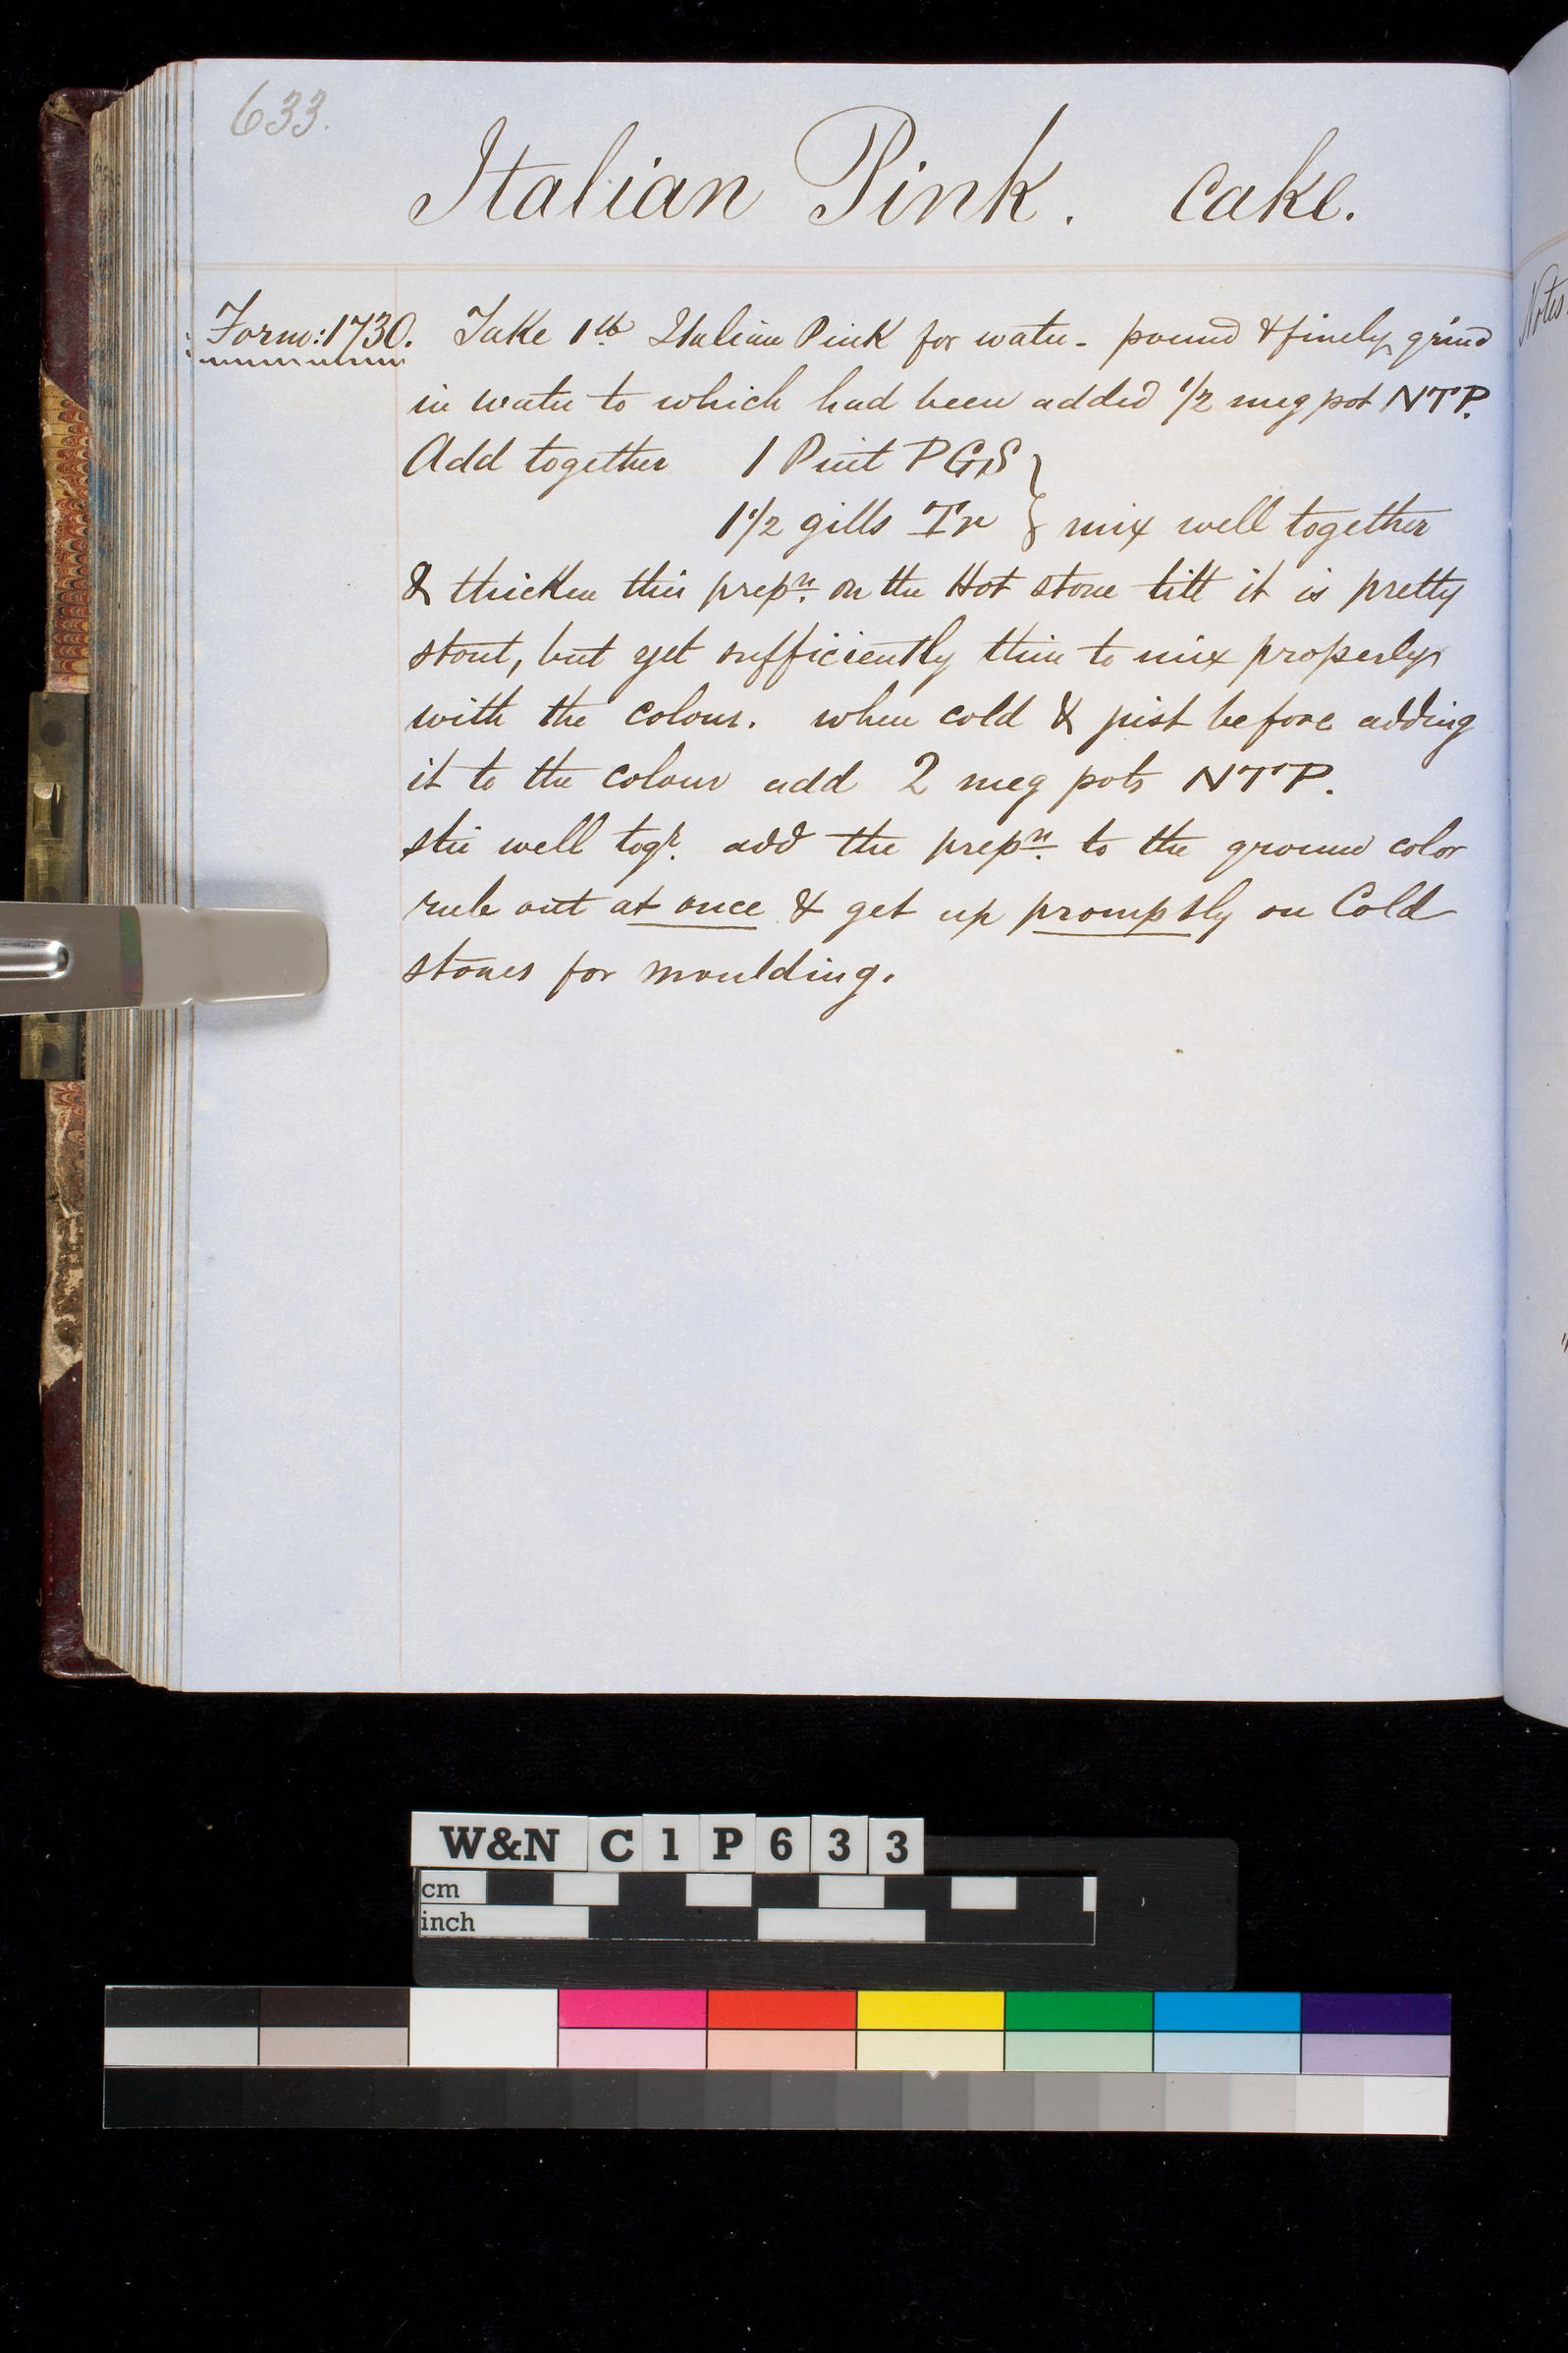 633.
Italian Pink. cake.
Form:1730. Take 1lb Italian Pink for water - pound & finely grind
in water to which had been added 1/2 meg pot NTP.
Add together 1 Pint PGS }
1 1/2 gills Tr } mix well together
& thicken this prepn. on the Hot stone till it is pretty
stout, but yet sufficiently thin to mix properly
with the colour. when cold & just before adding
it to the colour add 2 meg pots NTP.
stir well togr. add the prepn. to the ground color
rule out at once & get up promptly on Cold
stones for moulding.
Notes.
W&N C1P633
cm
inch